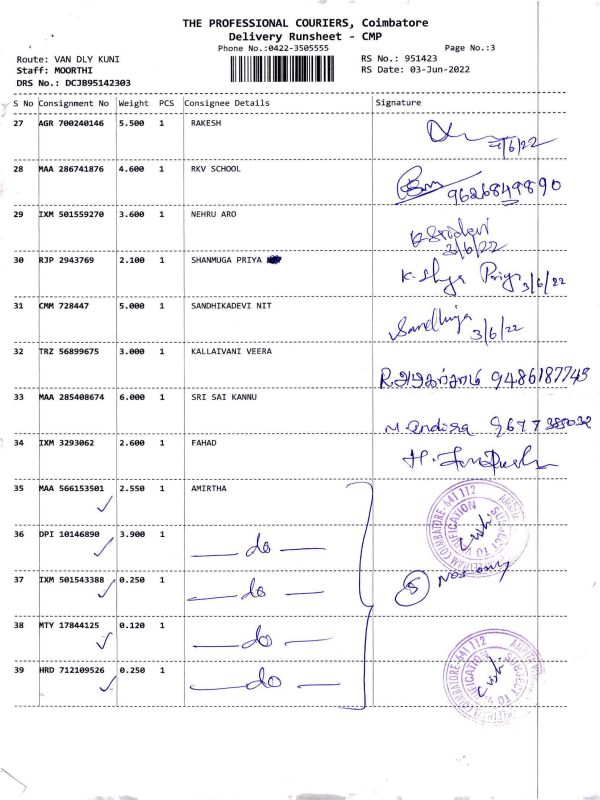 THE PROFESSIONAL COURIERS, Coimbatore
Delivery Runsheet - CMP
Phone No.:0422-3505555 Page No.:3
Route: VAN DLY KUNI RS No.: 951423
Staff: MOORTHI RS Date: 03-Jun-2022
DRS No.: DCJB95142303
S No Consignment No Weight PCS Consignee Details Signature
27 AGR 700240146 5.500 1 RAKESH
28 MAA 286741876 4.600 1 RKV SCHOOL 9626849890
29 IXM 501559270 3.600 1 NEHRU ARO
K Sridevi
3/6/22
30 RJP 2943769 2.100 1 SHANMUGA PRIYA
Priya 3/6/22
31 CMM 728447 5.000 1 SANDHIKADEVI NIT
Sandhiya 3/6/22
32 TRZ 56899675 3.000 1 KALLAIVANI VEERA
9486187743
33 MAA 285408674 6.000 1 SRI SAI KANNU
34 IXM 3293062 2.600 1 FAHAD
35 MAA 566153501 2.550 1 AMIRTHA
36 DPI 10146890 3.900 1 — do —
37 IXM 501543388 0.250 1 — do —
5 Nos only
38 MTY 17844125 0.120 1 — do —
39 HRD 712109526 0.250 1 — do —
COIMBATORE-641 112
SUBJECT TO VERIFICATION
COIMBATORE-641 112
SUBJECT TO VERIFICATION